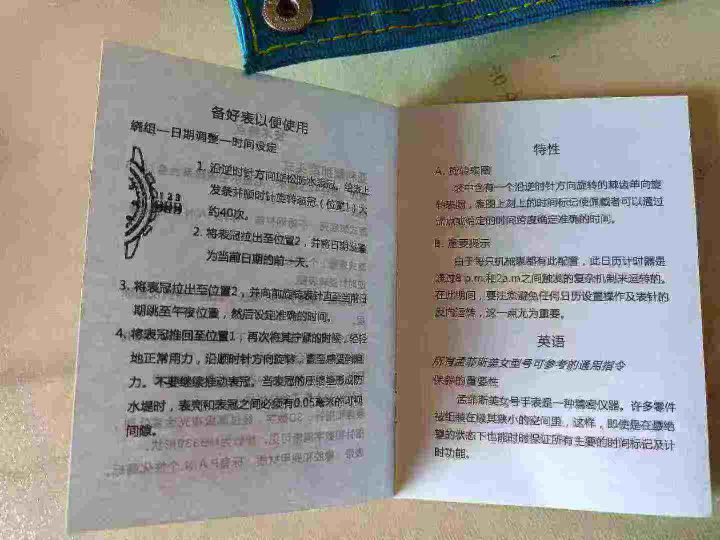 备好表以便使用
绕组一日期调整一时间设定
1 2 3
1. 沿逆时针方向旋松防水表冠。给表上
发条并顺时针旋转表冠（位置1）大
约40次。
2. 将表冠拉出至位置2，并将日期设置
为当前日期的前一天。
3. 将表冠拉出至位置2，并向前旋转表针直至当前日
期跳至午夜位置，然后设定准确的时间。
4. 将表冠推回至位置1，再次将其拧紧的时候，轻轻
地正常用力，沿顺时针方向旋转，直至感到阻
力。不要继续推动表冠。当表冠的压缩垫形成防
水堤时，表壳和表冠之间必须有0.05毫米的可视
间隙。
特性
A. 旋转表圈
这中含有一个沿逆时针方向旋转的棘齿单向旋
转表圈，表圈上刻上的时间标记使佩戴者可以通过
给定的时间跨度确定准确的时间。
B. 重要提示
由于每只机械表都有此配置，此日历计时器是
通过8 p.m.和2a.m之间触发的复杂机制来运转的。
在此期间，要注意避免任何日历设置操作及表针的
反向运转，这一点尤为重要。
英语
所有孟菲斯美女型号可参考的通用指令
保养的重要性
孟菲斯美女号手表是一种精密仪器。许多零件
被组装在极其狭小的空间里，这样，即使是在最绝
望的状态下也能时时保证所有主要的时间标记及计
时功能。